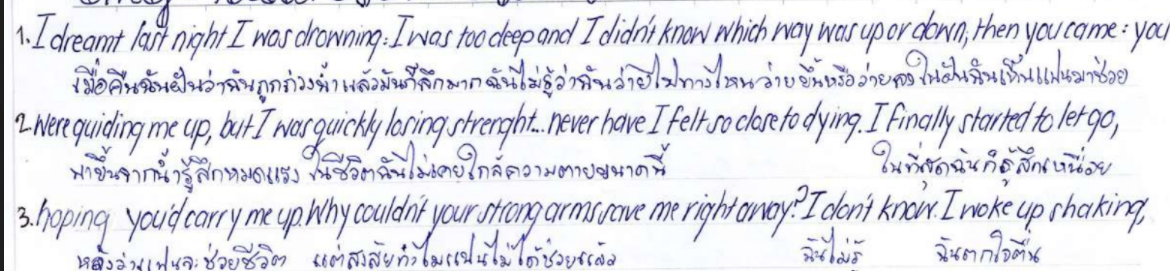 1. I dreamt last night I was drowning: I was too deep and I didn't know which way was up or down, then you came: you
เมื่อคืนฉันฝันว่าฉันถูกถ่วงน้ำ แล้วมันก็ลึกมาก ฉันไม่รู้ว่าฉันว่ายไปทางไหน ว่ายขึ้นหรือว่ายลง ในฝันฉันเห็นแฟนมาช่วย
2. Were guiding me up, but I was quickly losing strenght... never have I felt so close to dying. I finally started to let go,
พาขึ้นจากน้ำรู้สึกหมดแรง ในชีวิตฉันไม่เคยใกล้ความตายขนาดนี้ ในที่สุดฉันก็รู้สึกเหนื่อย
3. hoping you'd carry me up. Why couldn't your strong arms save me right away? I don't know. I woke up shaking,
หลังว่าแฟนจะช่วยชีวิต แต่สงสัยทำไมแฟนไม่ได้ช่วยแล้ว ฉันไม่รู้ ฉันตกใจตื่น